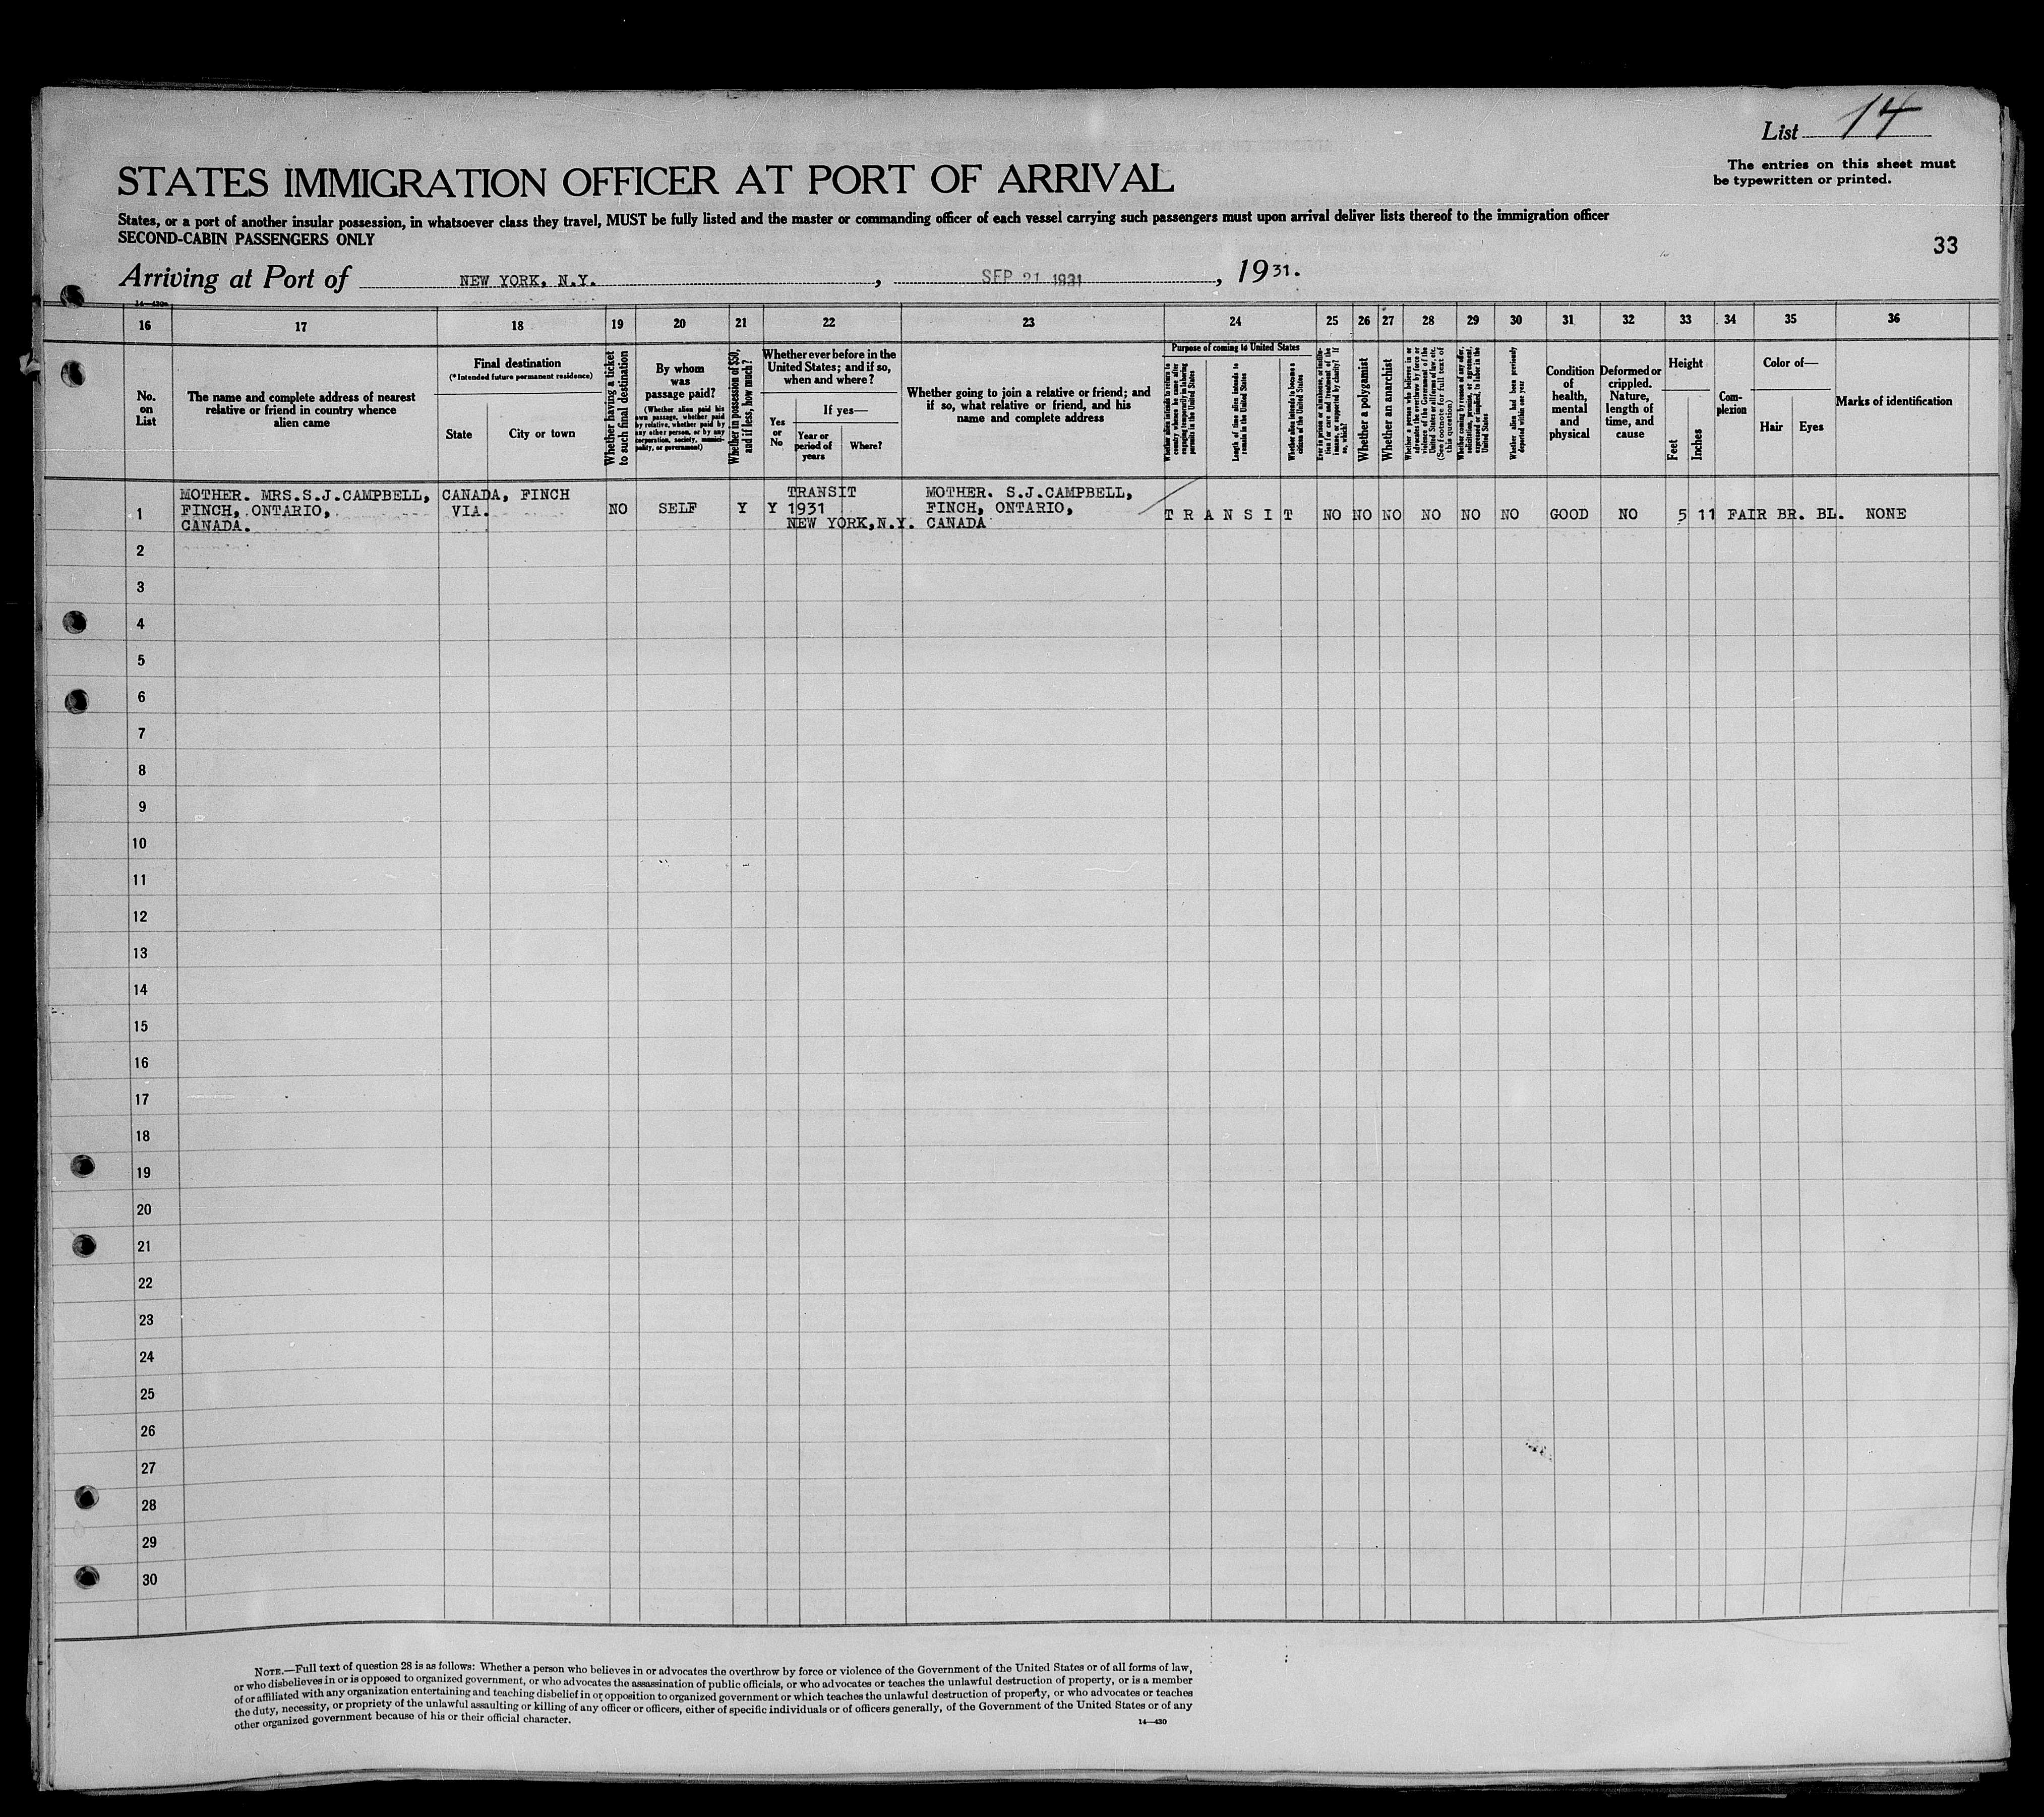 List 14
The entries on this sheet must
be typewritten or printed.
STATES IMMIGRATION OFFICER AT PORT OF ARRIVAL
States, or a port of another insular possession, in whatsoever class they travel, MUST be fully listed and the master or commanding officer of each vessel carrying such passengers must upon arrival deliver lists thereof to the immigration officer
SECOND-CABIN PASSENGERS ONLY
33
Arriving at Port of NEW YORK, N.Y. , SEP 21 1931 , 1931.
14—430a
16 17 18 19 20 21 22 23 24 25 26 27 28 29 30 31 32 33 34 35 36
No.
on
List
The name and complete address of nearest
relative or friend in country whence
alien came
Final destination
(*Intended future permanent residence)
State
City or town
Whether having a ticket
to such final destination
By whom
was
passage paid?
(Whether alien paid his
own passage, whether paid
by relative, whether paid by
any other person, or by any
corporation, society, munici-
pality, or government)
Whether in possession of $50,
and if less, how much?
Whether ever before in the
United States; and if so,
when and where?
Yes
or
No
If yes—
Year or
period of
years
Where?
Whether going to join a relative or friend; and
if so, what relative or friend, and his
name and complete address
Purpose of coming to United States
Whether alien intends to return to
country whence he came after
engaging temporarily in laboring
pursuits in the United States
Length of time alien intends to
remain in the United States
Whether alien intends to become a
citizen of the United States
Ever in prison or almshouse, or institu-
tion for care and treatment of the
insane, or supported by charity? If
so, which?
Whether a polygamist
Whether an anarchist
Whether a person who believes in or
advocates the overthrow by force or
violence of the Government of the
United States or all forms of law, etc.
(See footnote for full text of
this question)
Whether coming by reason of any offer,
solicitation, promise, or agreement,
expressed or implied, to labor in the
United States
Whether alien had been previously
deported within one year
Condition
of
health,
mental
and
physical
Deformed or
crippled.
Nature,
length of
time, and
cause
Height
Feet
Inches
Com-
plexion
Color of—
Hair
Eyes
Marks of identification
MOTHER. MRS.S.J.CAMPBELL, CANADA, FINCH TRANSIT MOTHER. S.J.CAMPBELL,
1 FINCH, ONTARIO, VIA. NO SELF Y Y 1931 FINCH, ONTARIO, TRANSIT NO NO NO NO NO NO GOOD NO 5 11 FAIR BR. BL. NONE
CANADA. NEW YORK,N.Y. CANADA
2
3
4
5
6
7
8
9
10
11
12
13
14
15
16
17
18
19
20
21
22
23
24
25
26
27
28
29
30
NOTE.—Full text of question 28 is as follows: Whether a person who believes in or advocates the overthrow by force or violence of the Government of the United States or of all forms of law,
or who disbelieves in or is opposed to organized government, or who advocates the assassination of public officials, or who advocates or teaches the unlawful destruction of property, or is a member
of or affiliated with any organization entertaining and teaching disbelief in or opposition to organized government or which teaches the unlawful destruction of property, or who advocates or teaches
the duty, necessity, or propriety of the unlawful assaulting or killing of any officer or officers, either of specific individuals or of officers generally, of the Government of the United States or of any
other organized government because of his or their official character.
14—430